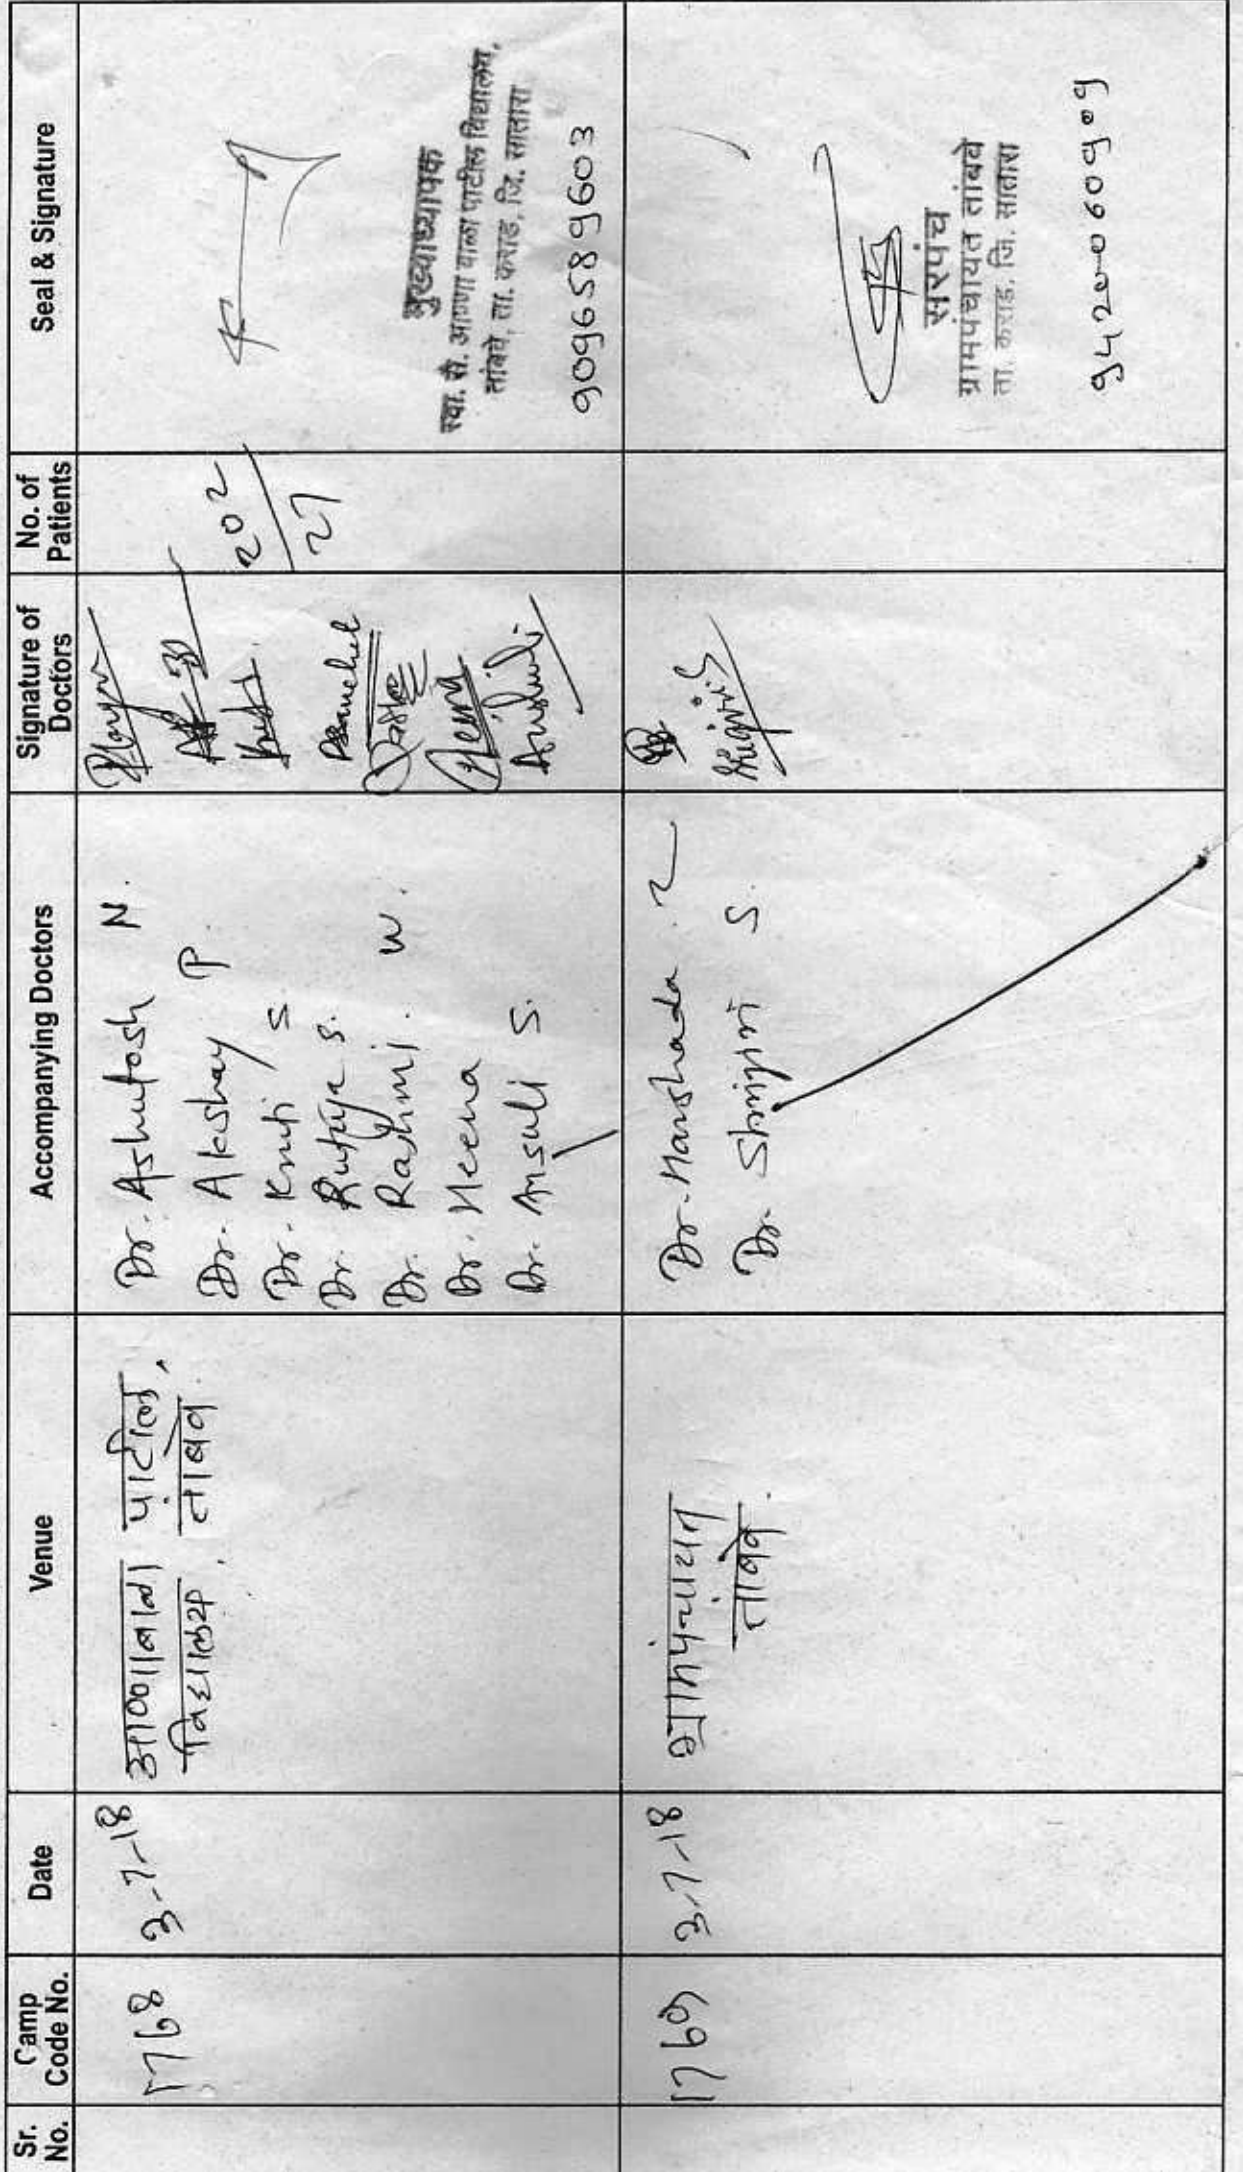 Sr. No.
Camp Code No.
Date
Venue
Accompanying Doctors
Signature of Doctors
No. of Patients
Seal & Signature
1768
3-7-18
आण्णाबाळा पाटील,
विद्यालय, तांबवे
Dr. Ashutosh N.
Dr. Akshay P.
Dr. Kruti S.
Dr. Rutuja S.
Dr. Rashmi. W.
Dr. Heena
Dr. Ansuli S.
202
27
मुख्याध्यापक
स्वा. सै. आण्णा बाळा पाटील विद्यालय,
तांबवे, ता. कराड, जि. सातारा
9096589603
1769
3-7-18
ग्रामपंचायत
तांबवे
Dr. Harshada Z
Dr. Shrijiri S.
सरपंच
ग्रामपंचायत तांबवे
ता. कराड, जि. सातारा